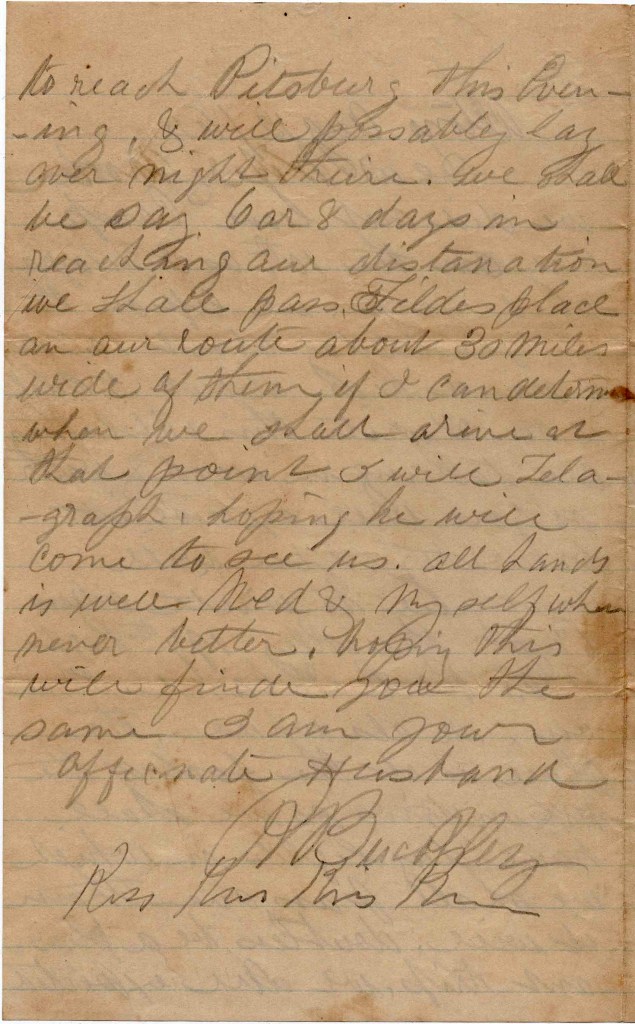 to reach Pitsburg this Even-
-ing, & will possabley lay
over night theire. we shall
be say 6 or 8 days in
reaching our distanation
we shall pass Tildes place
on our route about 30 miles
wide of them if I can determ
when we shall arive at
that point I will Tela-
-graph. hoping he will
come to see us. all hands
is well Ned & My self whare
never better. hoping this
will finde you the
same I am your
affecnate Husband
J Buckley
Kiss